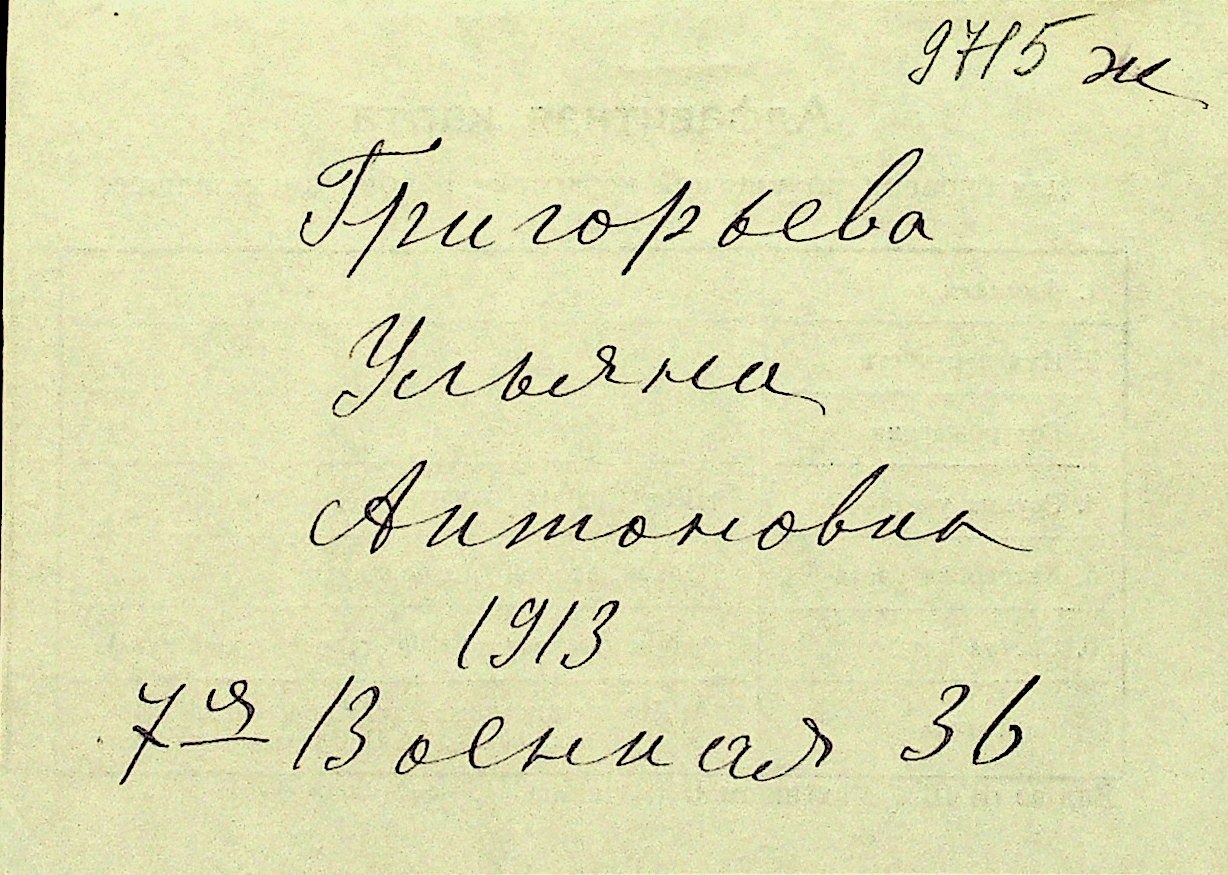 9715 ж
Григорьева
Ульяна
Антоновна
1913
7я Военная 36